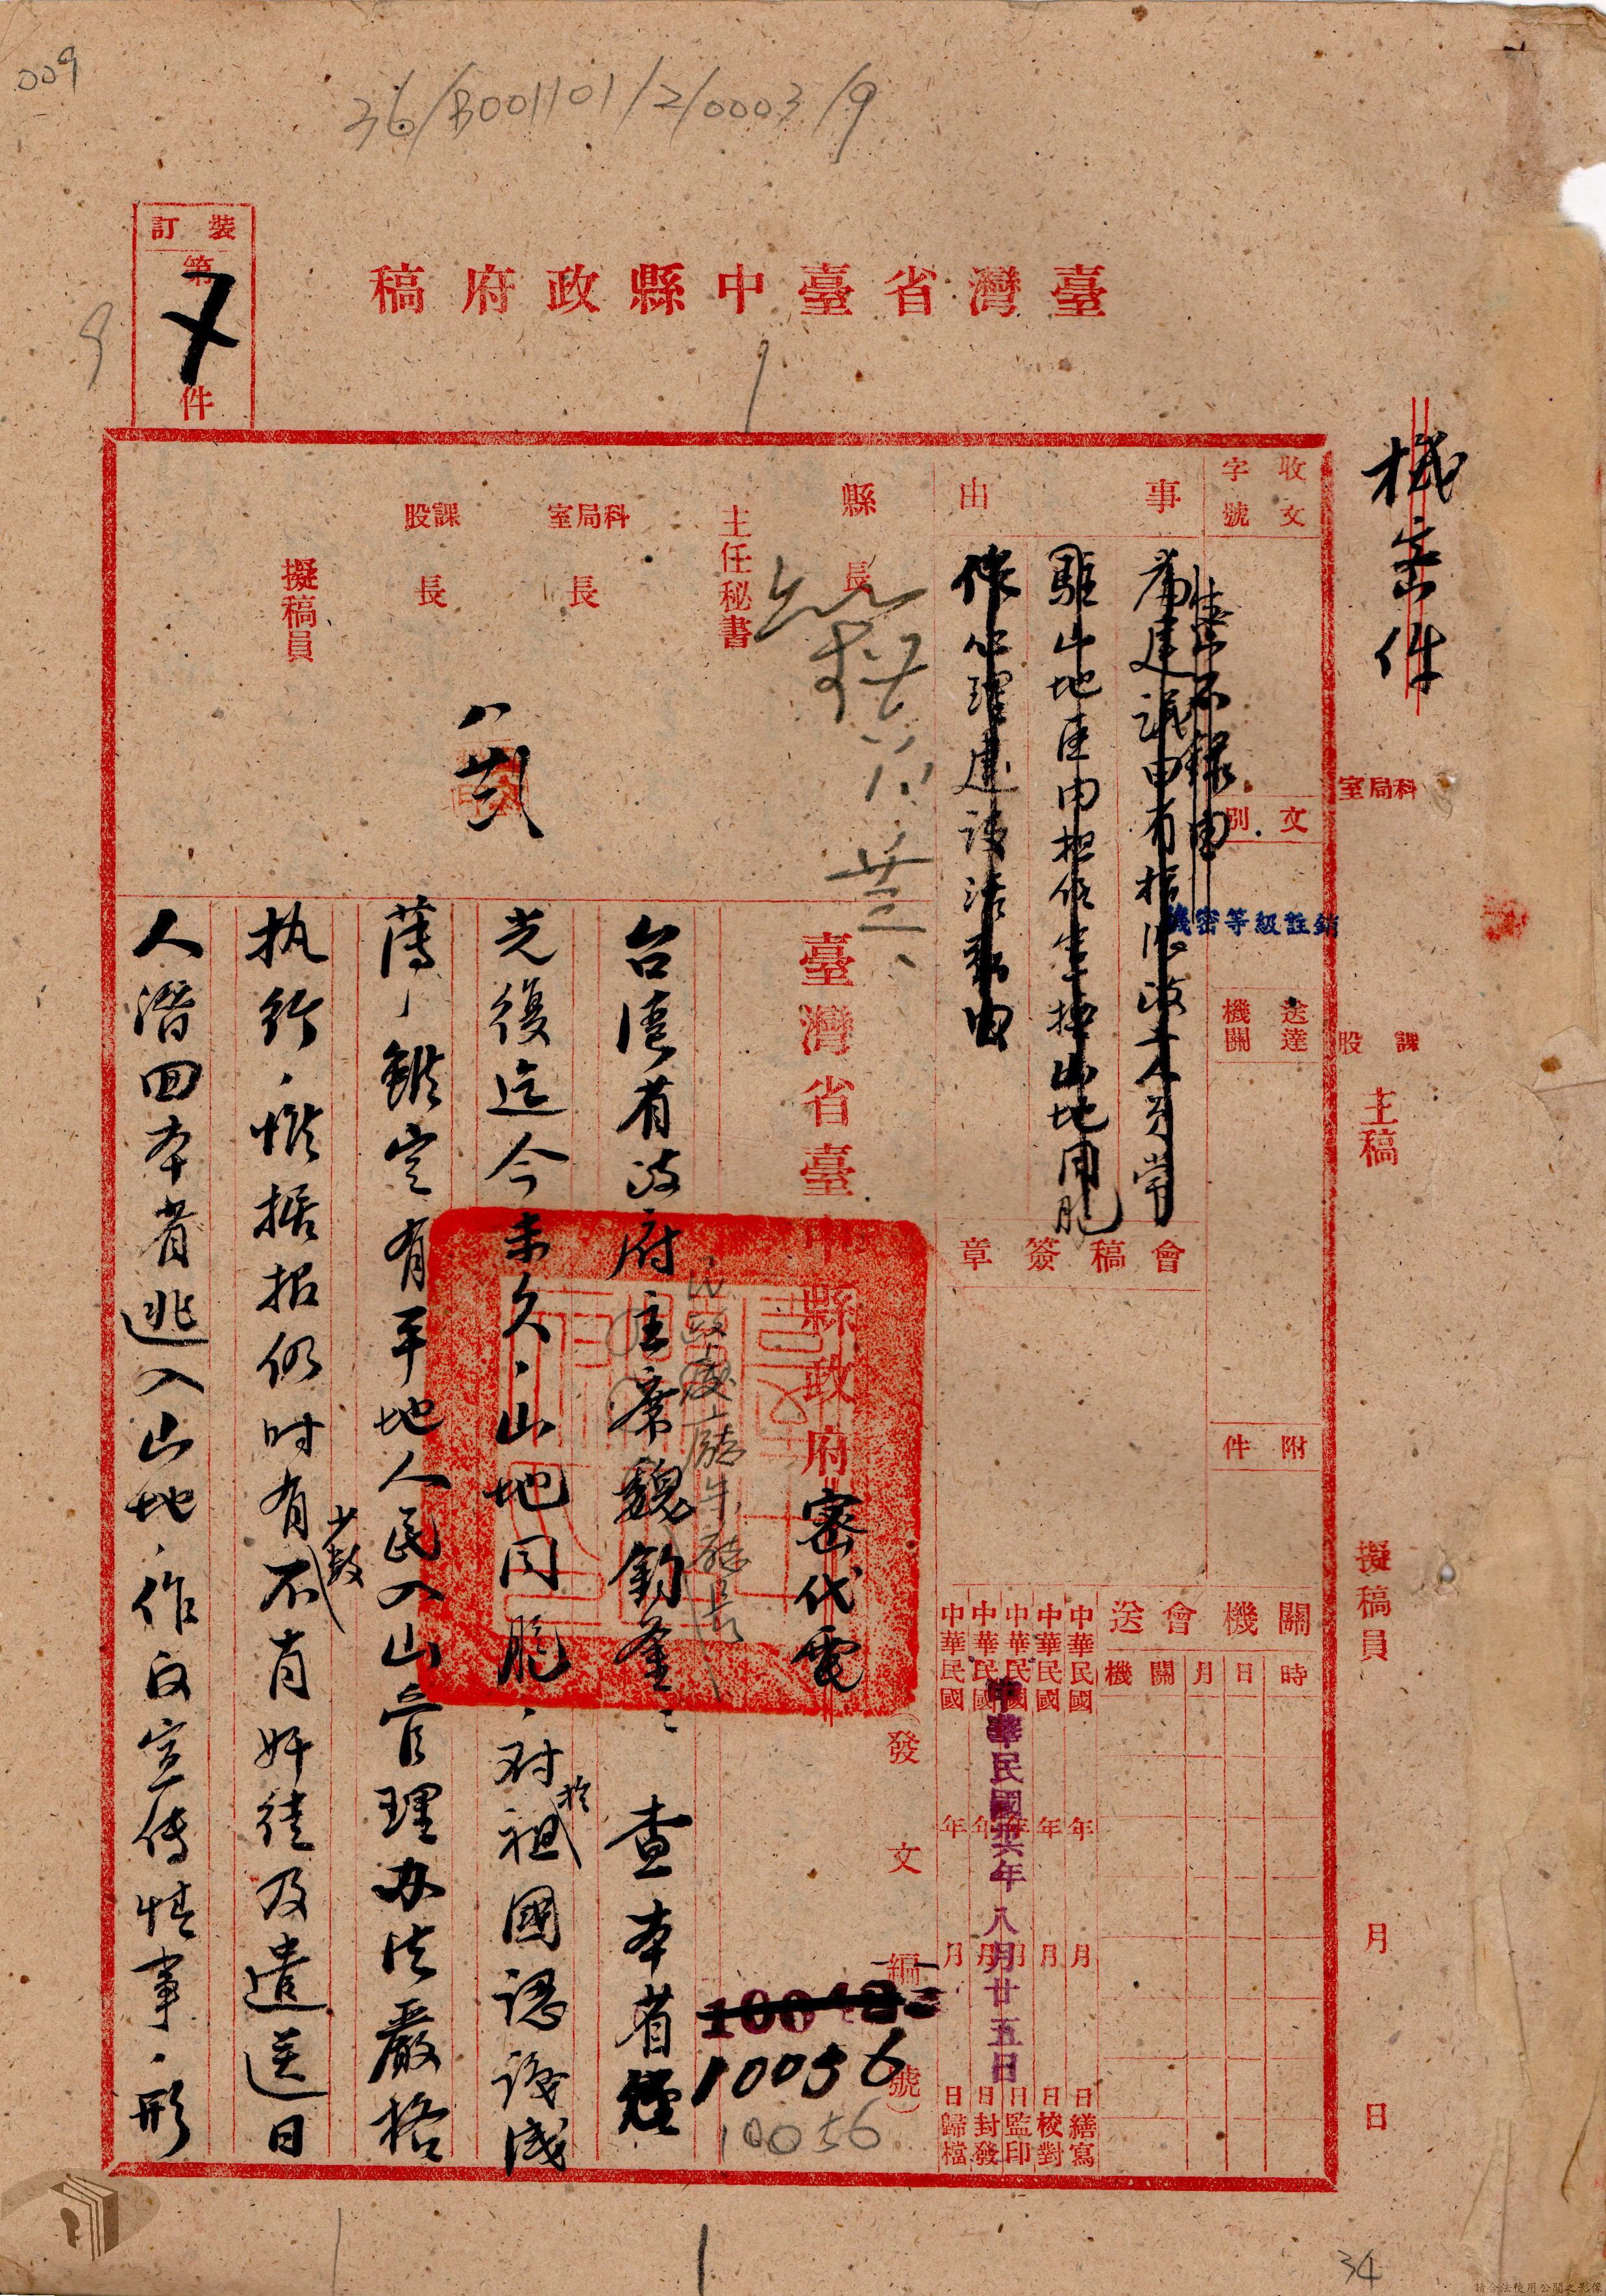 009
36/B001101/2/0003/9
裝訂
第
件
9
臺灣省臺中縣政府稿
機密件
科局室
課股
主稿
擬稿員
月
日
收文
字號
文別
送達機關
附件
機密等級註銷
事由
恭不錄由
為建議由有指派政工人員常
駐山地區由担任掌握山地同胞
作心理建設活動由
會稿簽章
關機會送
時日月關機
中華民國 年 月 日繕寫
中華民國 年 月 日校對
中華民國 年 月 日監印
中華民國 年 月 日封發
中華民國 年 月 日歸檔
中華民國卅六年八月廿五日
縣長
主任秘書
科局室長
課股長
擬稿員
八
臺灣省臺中縣政府密代電
(發文編號)
10056
10056
民政處廳
台湾省政府主席魏鈞鉴: 查本省
光復迄今未久、山地同胞、对於祖國認識淺
薄、雖定有平地人民入山管理办法嚴格
执行、惟据报仍时有少数不肖奸徒及遣送日
人潛回本省逃入山地、作反宣传情事、形
34
請合法使用公開之影像